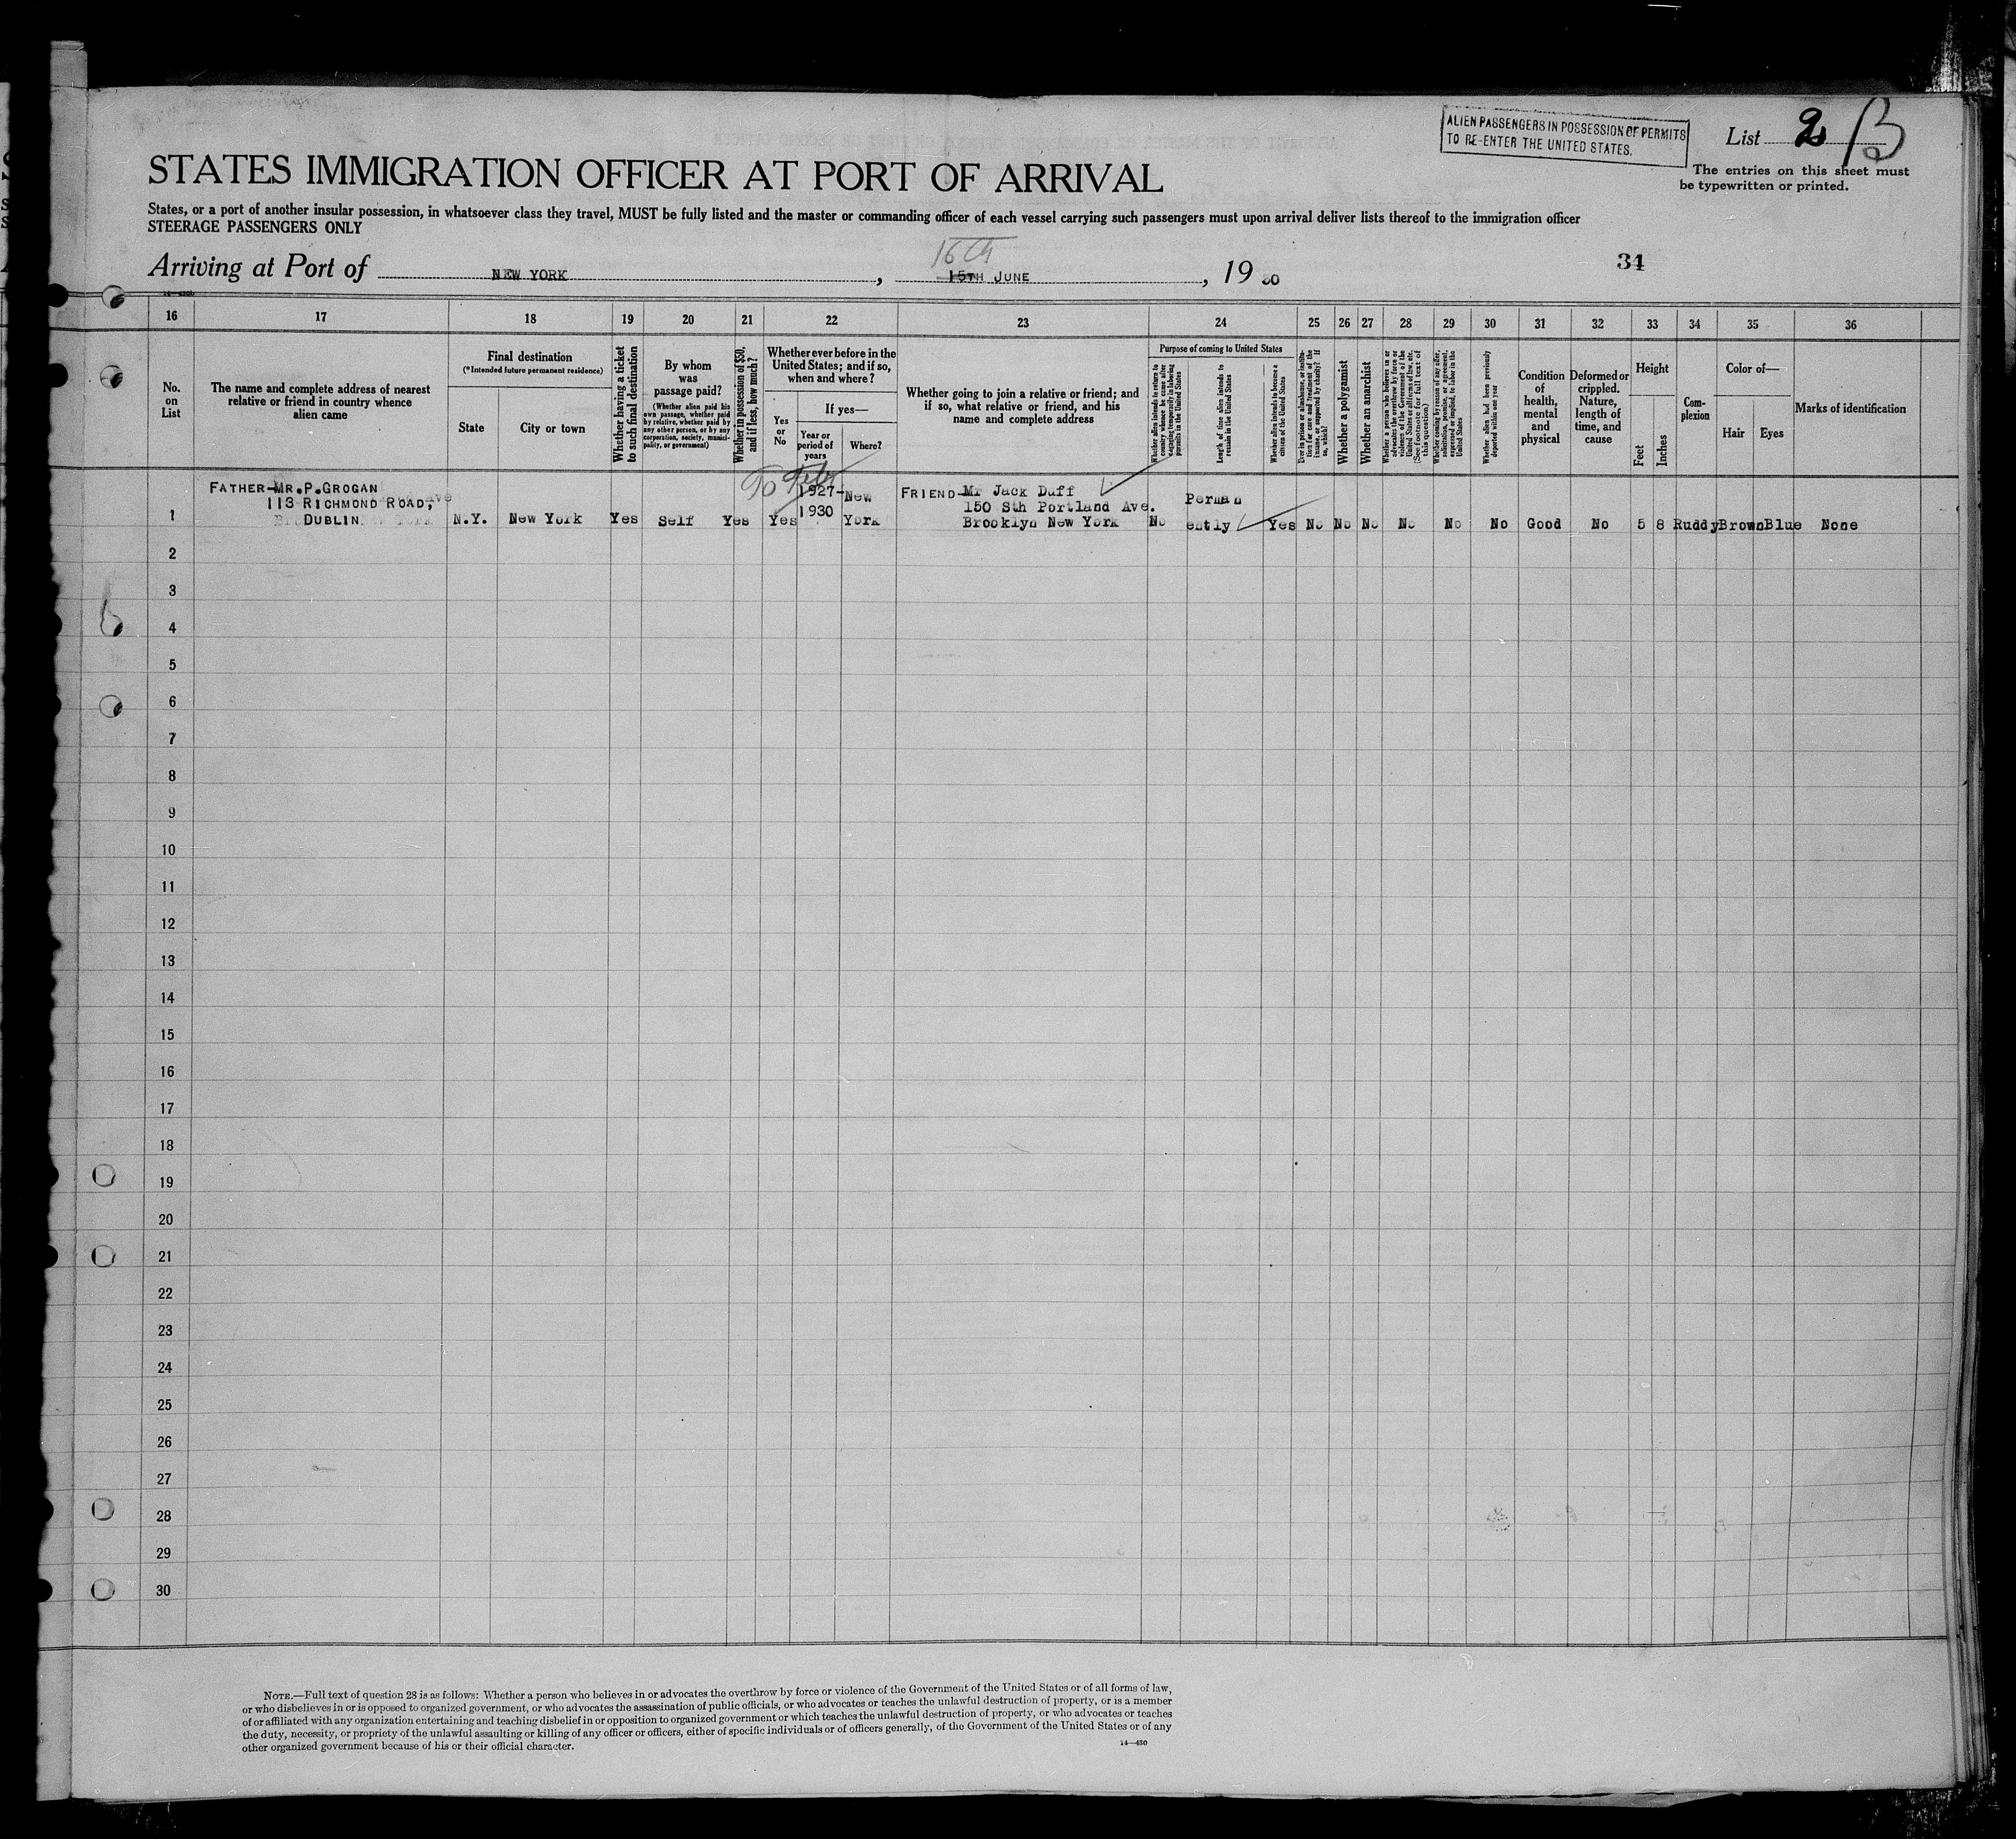 ALIEN PASSENGERS IN POSSESSION OF PERMITS
TO RE-ENTER THE UNITED STATES.
List 2 B
The entries on this sheet must
be typewritten or printed.
STATES IMMIGRATION OFFICER AT PORT OF ARRIVAL
States, or a port of another insular possession, in whatsoever class they travel, MUST be fully listed and the master or commanding officer of each vessel carrying such passengers must upon arrival deliver lists thereof to the immigration officer
STEERAGE PASSENGERS ONLY
16th
Arriving at Port of NEW YORK, 15TH JUNE, 19 30
34
16 17 18 19 20 21 22 23 24 25 26 27 28 29 30 31 32 33 34 35 36
No.
on
List
The name and complete address of nearest
relative or friend in country whence
alien came
Final destination
(*Intended future permanent residence)
State
City or town
Whether having a ticket
to such final destination
By whom
was
passage paid?
(Whether alien paid his
own passage, whether paid
by relative, whether paid by
any other person, or by any
corporation, society, munici-
pality, or government)
Whether in possession of $50,
and if less, how much?
Whether ever before in the
United States; and if so,
when and where?
Yes
or
No
If yes—
Year or
period of
years
Where?
Whether going to join a relative or friend; and
if so, what relative or friend, and his
name and complete address
Purpose of coming to United States
Whether alien intends to return to
country whence he came after
engaging temporarily in laboring
pursuits in the United States
Length of time alien intends to
remain in the United States
Whether alien intends to become a
citizen of the United States
Ever in prison or almshouse, or institu-
tion for care and treatment of the
insane, or supported by charity? If
so, which?
Whether a polygamist
Whether an anarchist
Whether a person who believes in or
advocates the overthrow by force or
violence of the Government of the
United States or all forms of law, etc.
(See footnote for full text of
this question)
Whether coming by reason of any offer,
solicitation, promise, or agreement,
expressed or implied, to labor in the
United States
Whether alien had been previously
deported within one year
Condition
of
health,
mental
and
physical
Deformed or
crippled.
Nature,
length of
time, and
cause
Height
Feet
Inches
Com-
plexion
Color of—
Hair
Eyes
Marks of identification
FATHER-MR.P.GROGAN
113 RICHMOND ROAD,
DUBLIN.
1 N.Y. New York Yes Self Yes Yes
1927-
1930
New
York
FRIEND-Mr Jack Duff
150 Sth Portland Ave.
Brooklyn New York
No
Perman
ently
Yes No No No No No No Good No 5 8 Ruddy Brown Blue None
2
3
4
5
6
7
8
9
10
11
12
13
14
15
16
17
18
19
20
21
22
23
24
25
26
27
28
29
30
NOTE.—Full text of question 28 is as follows: Whether a person who believes in or advocates the overthrow by force or violence of the Government of the United States or of all forms of law,
or who disbelieves in or is opposed to organized government, or who advocates the assassination of public officials, or who advocates or teaches the unlawful destruction of property, or is a member
of or affiliated with any organization entertaining and teaching disbelief in or opposition to organized government or which teaches the unlawful destruction of property, or who advocates or teaches
the duty, necessity, or propriety of the unlawful assaulting or killing of any officer or officers, either of specific individuals or of officers generally, of the Government of the United States or of any
other organized government because of his or their official character.
14—430